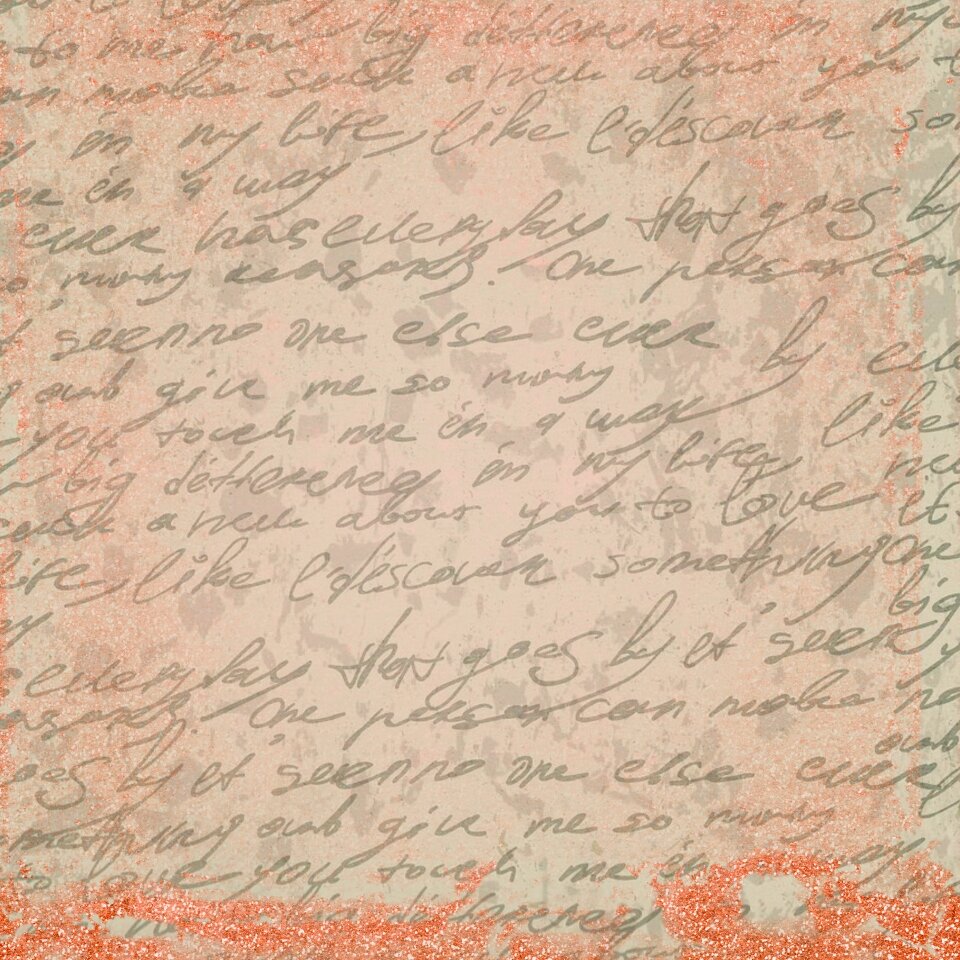 to me how big difference in my
can make such a new about you t
in my life, like I discover so
me in a way
ever has everyday that goes by
so many reasons. One person can
t seen no one else ever by eve
and give me so many
you touch me in a way like
big difference in my life,
such a new about you to love it.
life, like I discover something One
big
everyday that goes by it seen
One person can make no
goes by it seen no one else ever and
mething and give me so many
to love you touch me in way
big difference